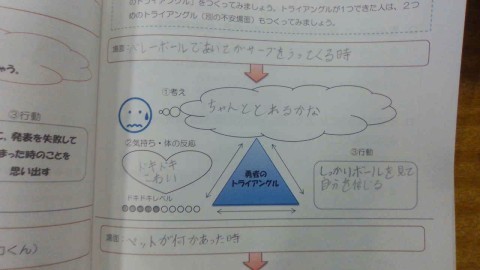 のトライアングル」をつくってみましょう。トライアングルが1つできた人は、2つ
めのトライアングル(別の不安場面)もつくってみましょう。
場面:バレーボールであいてがサーブをうってくる時
ゃう。
①考え
ちゃんととれるかな
③行動
て、発表を失敗して
まった時のことを
思い出す
②気持ち・体の反応
ドキドキ
こわい
ドキドキレベル
勇者の
トライアングル
③行動
しっかりボールを見て
自分を信じる
場面:ペットが何かあった時
くん)